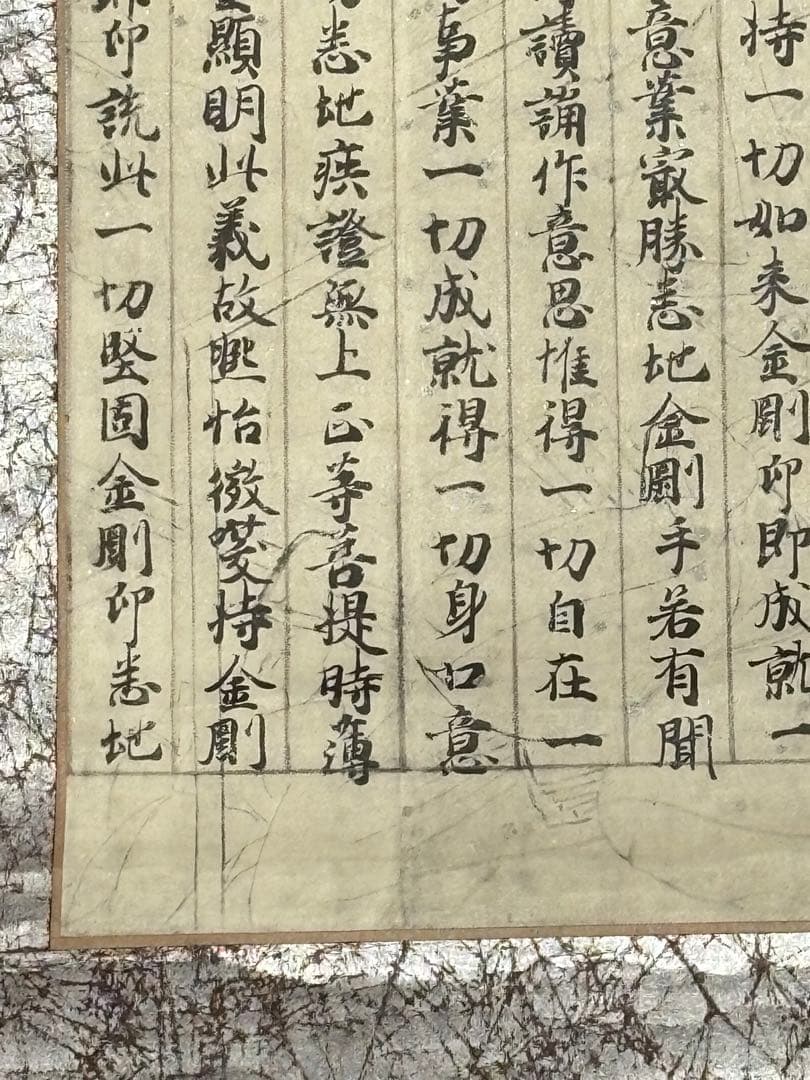 持一切如来金剛印即成就一
意業㝡勝悉地金剛手若有聞
讀誦作意思惟得一切自在一
事業一切成就得一切身口意
悉地疾證無上正等菩提時薄
顯明此義故熙怡微咲持金剛
印説此一切堅固金剛印悉地